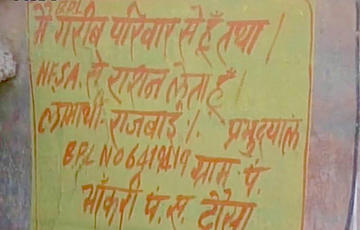 मैं गरीब परिवार से हूँ तथा।
N.F.S.A. से राशन लेता हूँ।
लाभार्थी राजबाई।. प्रभुदयाल
BPL NO 6419119 ग्राम पं.
भाँकरी पं. स. दौसा